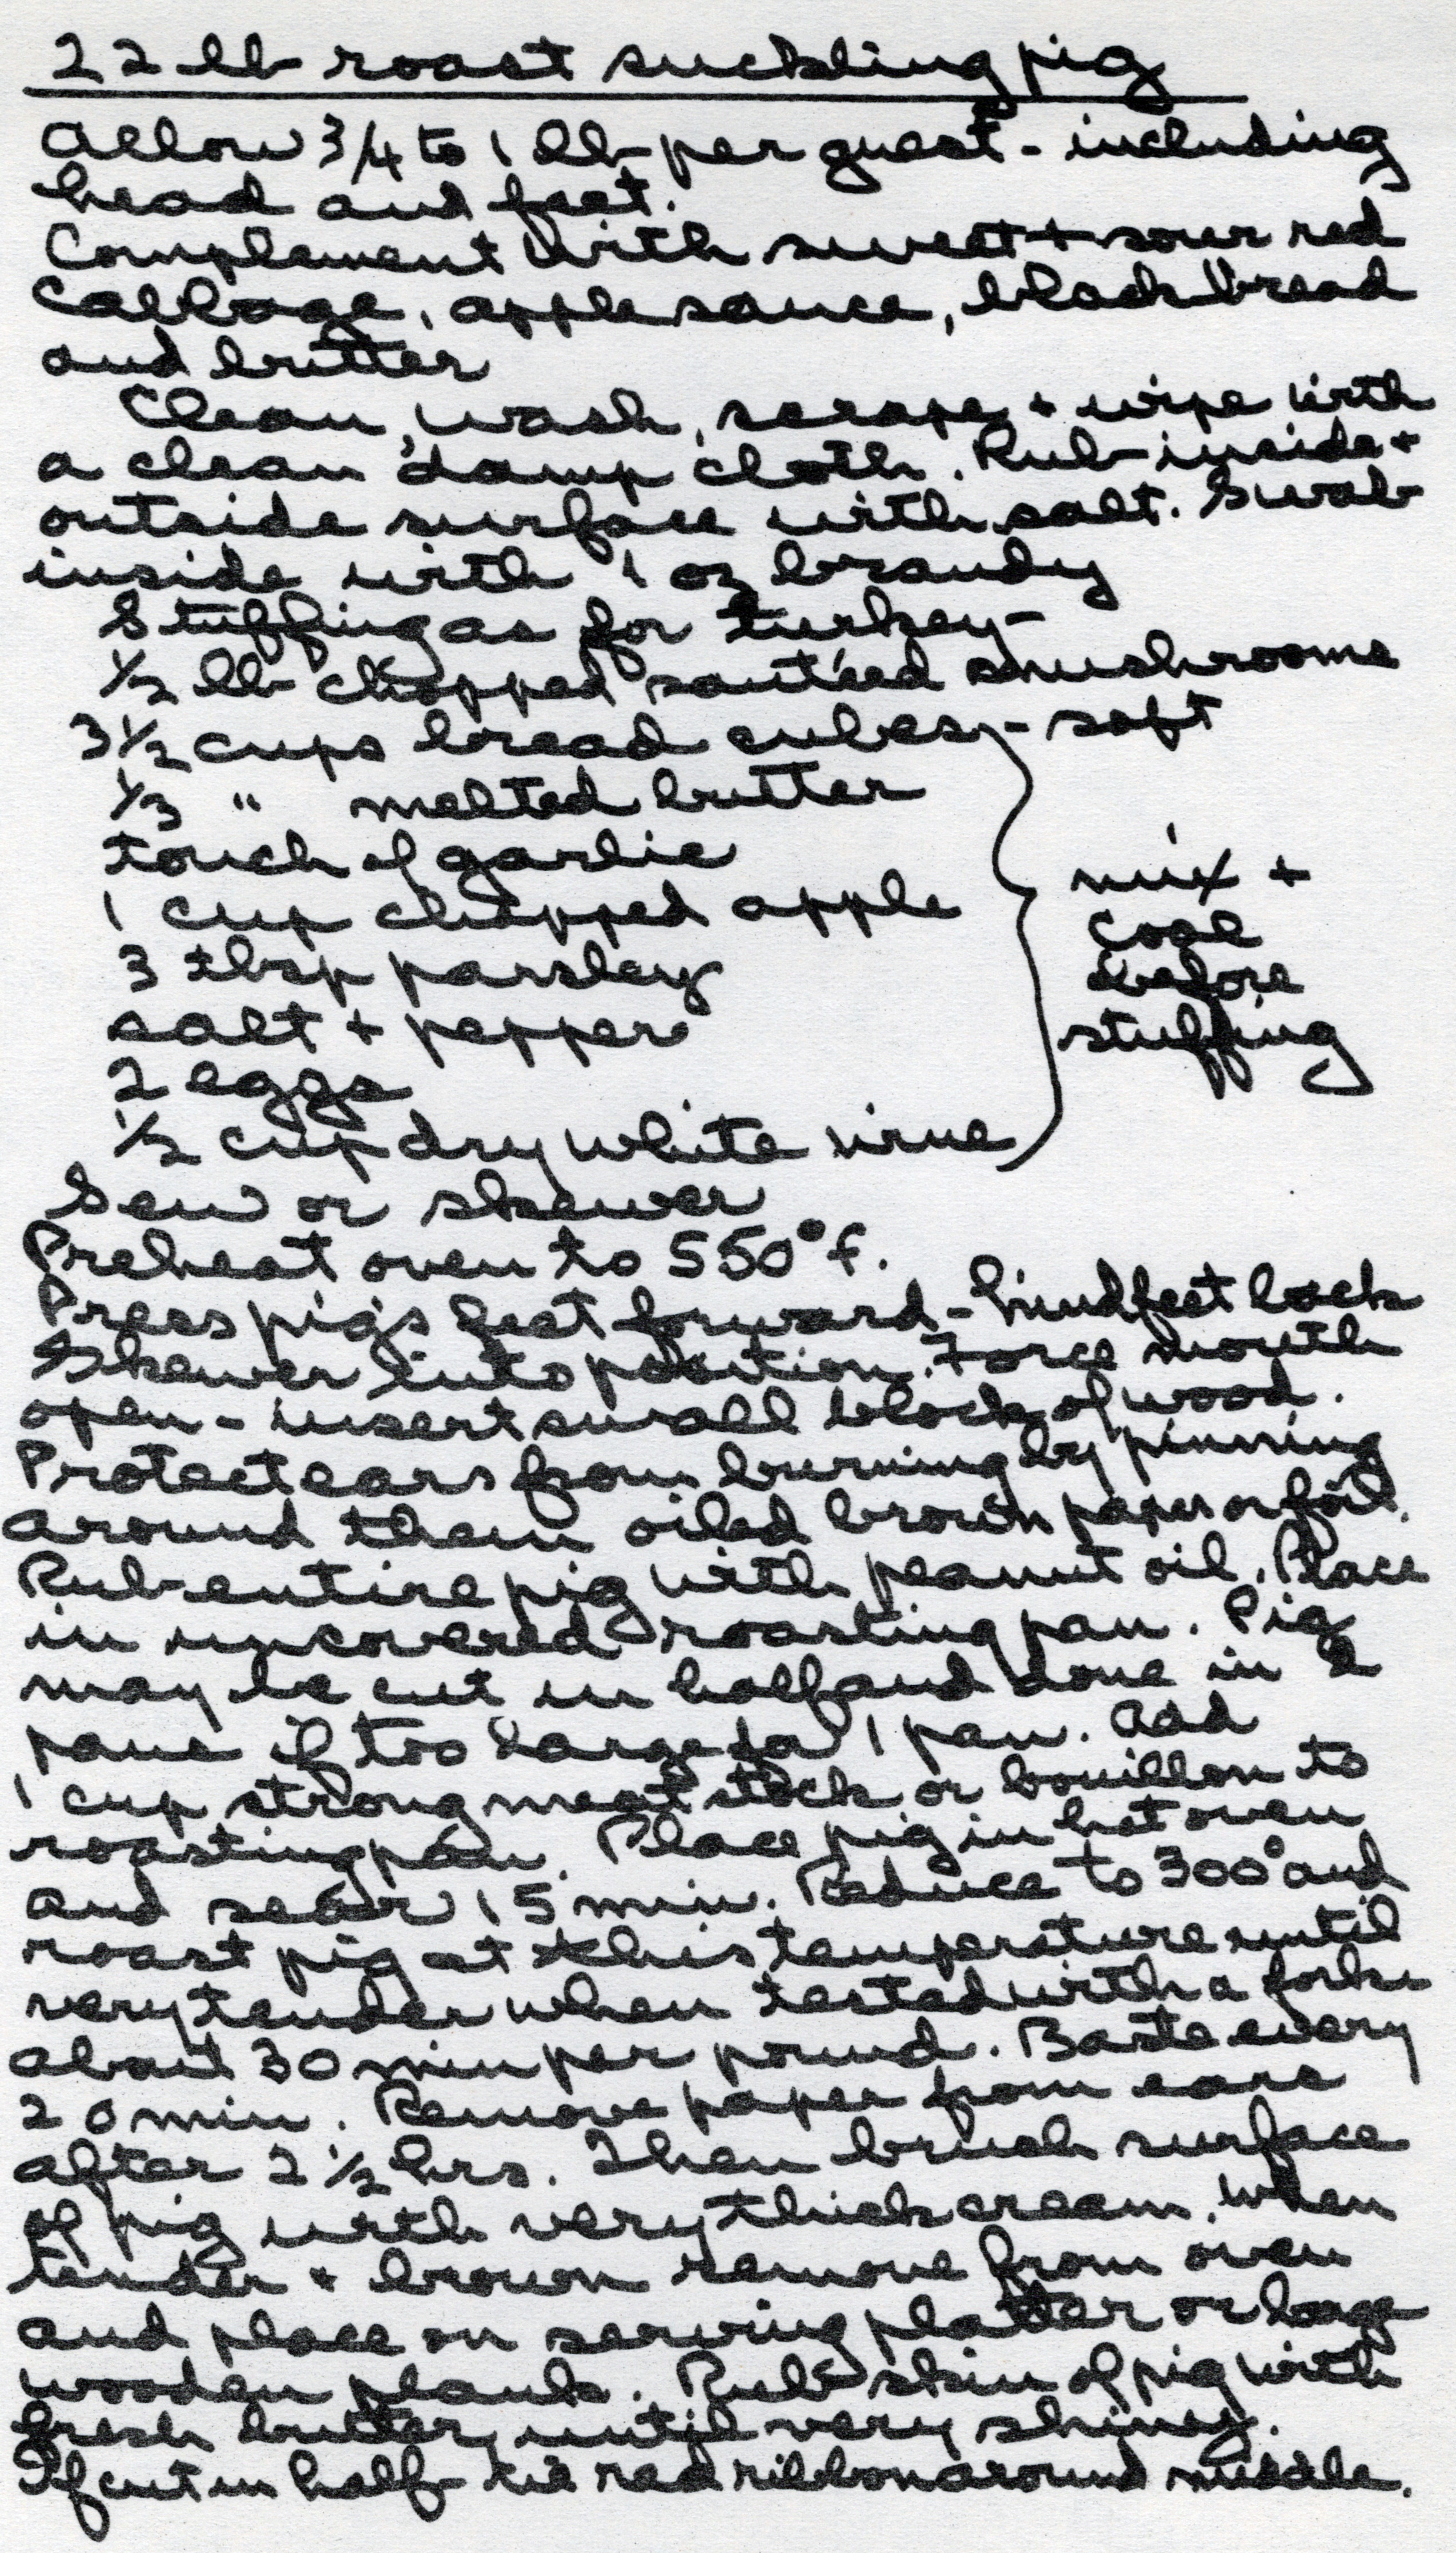 22 lb roast suckling pig
Allow 3/4 to 1 lb per guest - including
head and feet.
Complement with sweet + sour red
cabbage, applesauce, black bread
and butter
Clean, wash, scrape + wipe with
a clean damp cloth. Rub inside +
outside surface with salt. Swab
inside with 1 oz brandy
Stuffing as for turkey -
1/2 lb chopped sautéed mushrooms
3 1/2 cups bread cubes - soft
1/3 " melted butter
touch of garlic
1 cup chopped apple
3 tbsp parsley
salt + pepper
2 eggs
1/2 cup dry white wine
mix +
cool
before
stuffing
Sew or skewer
Preheat oven to 550° f.
Press pig's feet forward - hind feet back
Skewer into position. Force mouth
open - insert small block of wood.
Protect ears from burning by pinning
around them oiled brown paper or foil.
Rub entire pig with peanut oil. Place
in uncovered roasting pan. Pig
may be cut in half and done in 2
pans if too large for 1 pan. Add
1 cup strong meat stock or bouillon to
roasting pan. Place pig in hot oven
and sear 15 min. Reduce to 300° and
roast pig at this temperature until
very tender when tested with a fork
about 30 min per pound. Baste every
20 min. Remove paper from ears
after 2 1/2 hrs. Then brush surface
of pig with very thick cream. When
tender + brown remove from oven
and place on serving platter or large
wooden plank. Rub skin of pig with
fresh butter, until very shiney.
If cut in half - tie red ribbon around middle.